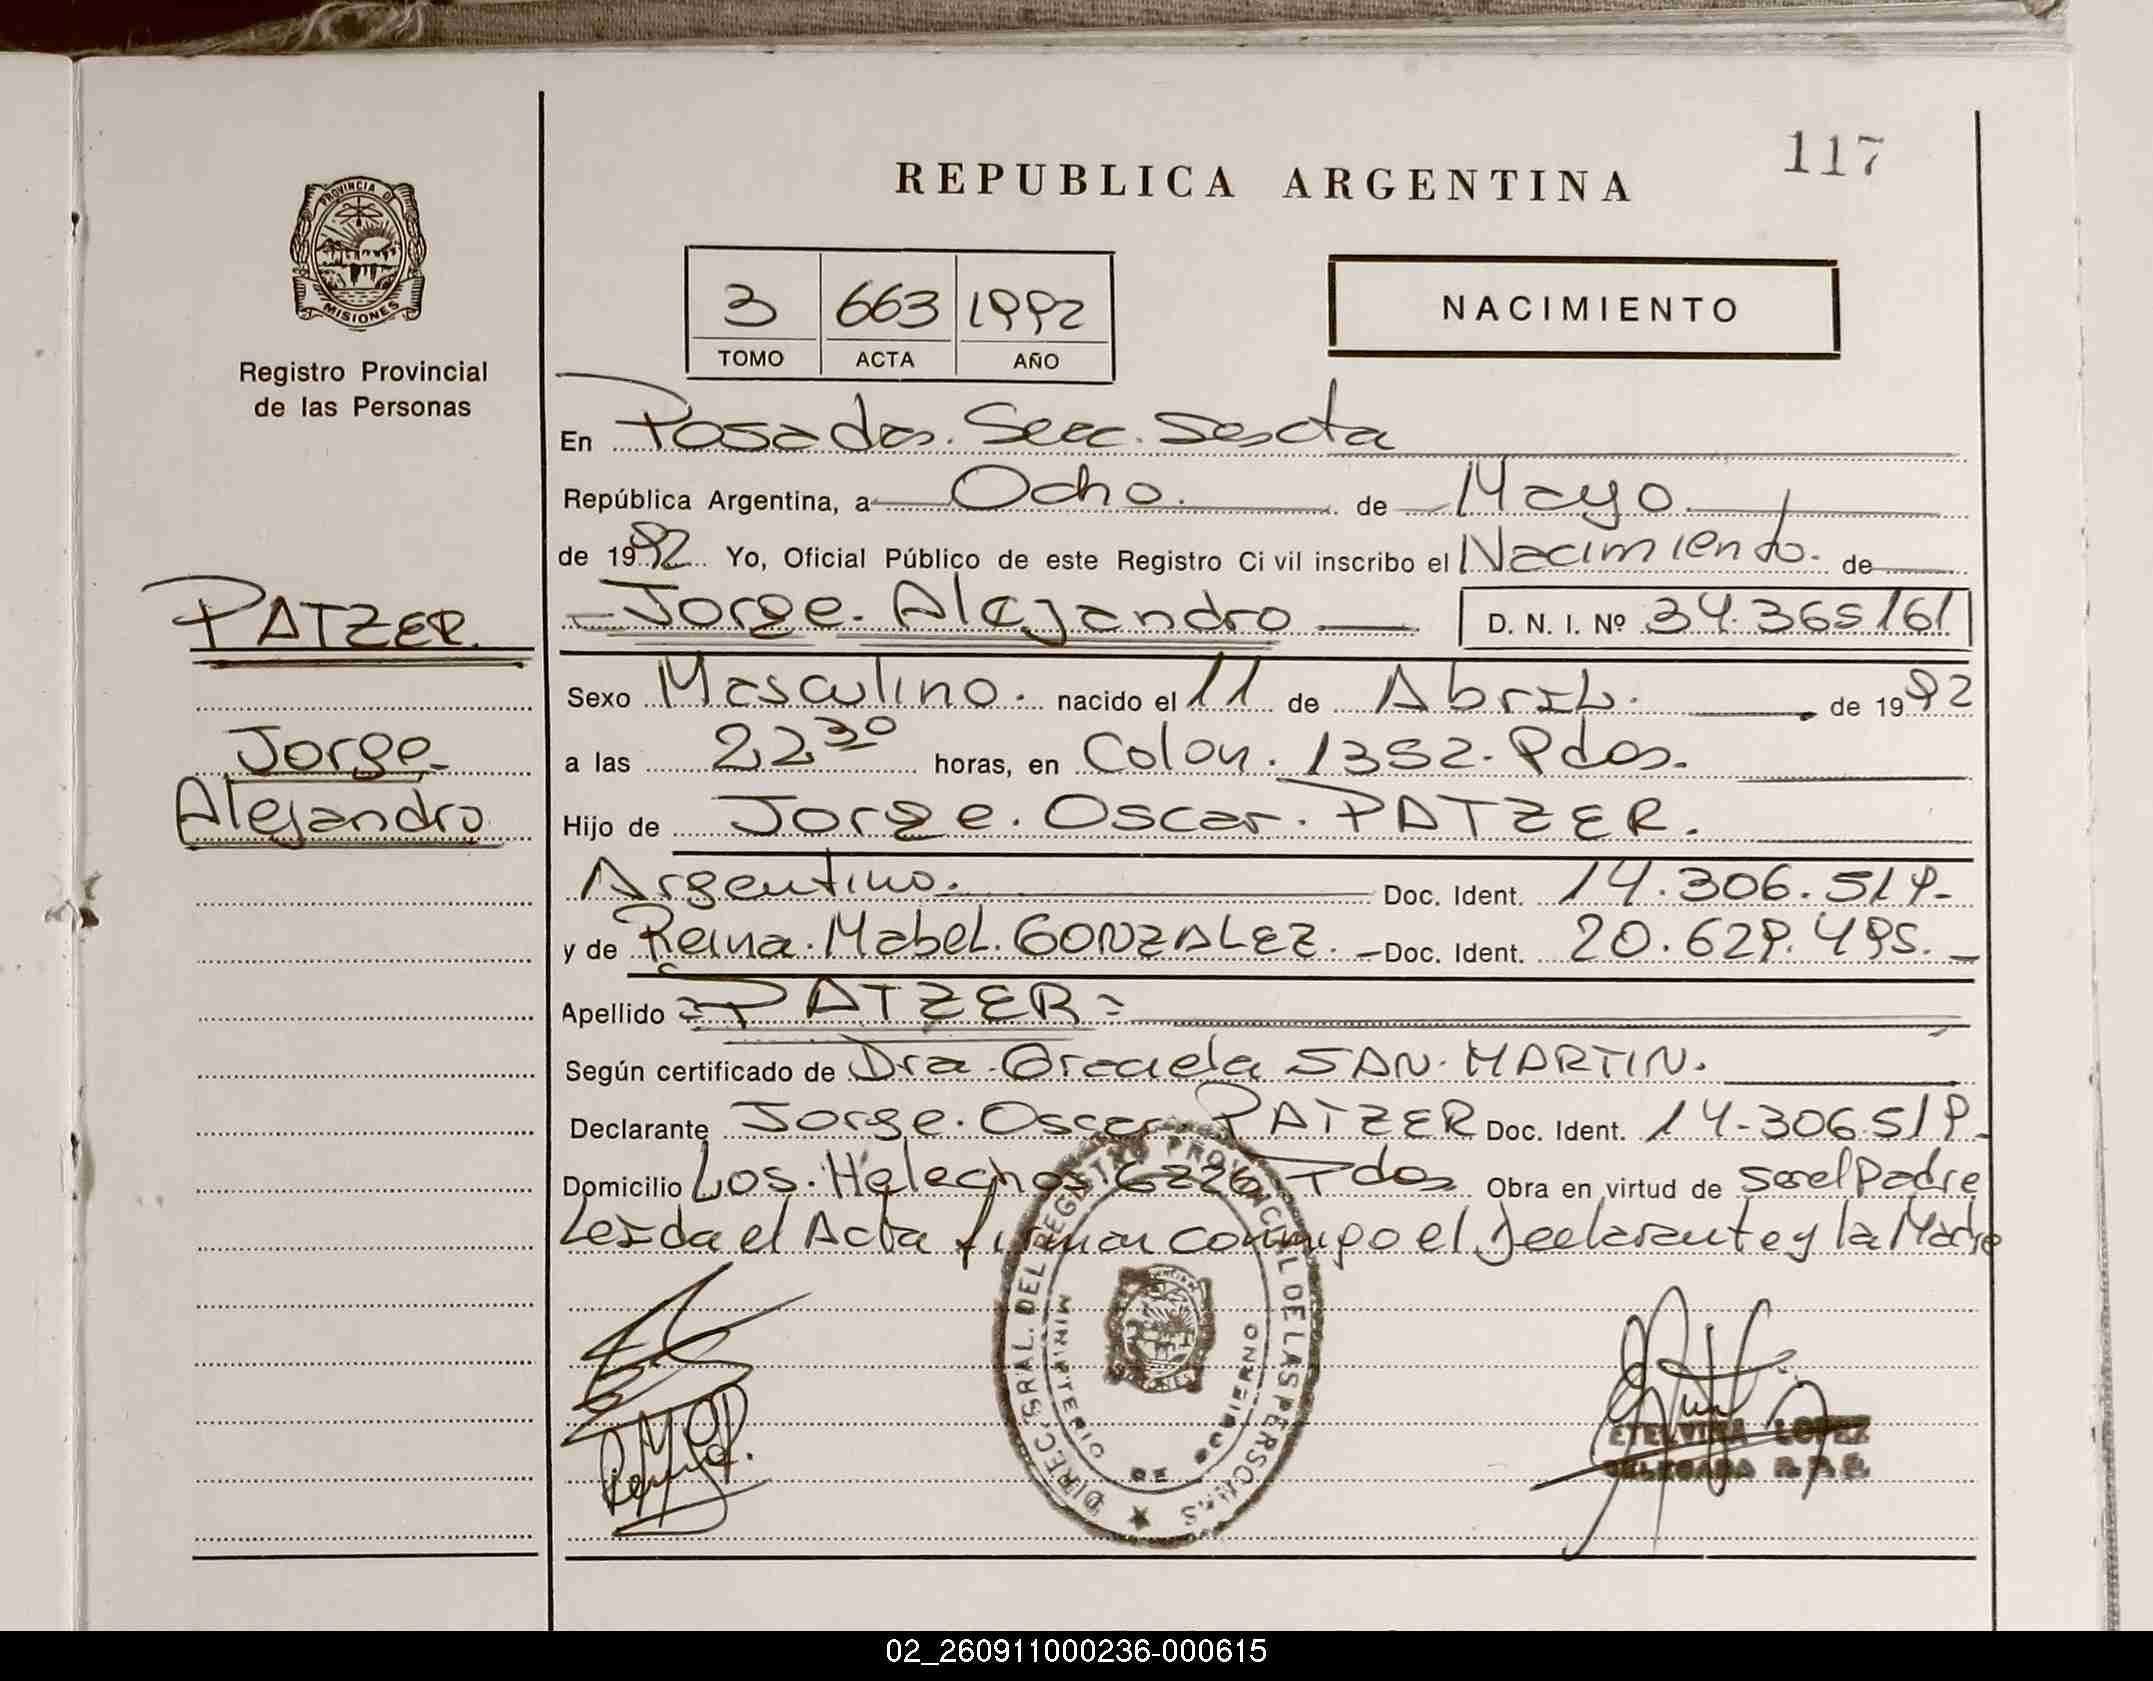 117
REPUBLICA ARGENTINA
PROVINCIA DE
MISIONES
Registro Provincial
de las Personas
3 663 1992
TOMO ACTA AÑO
NACIMIENTO
En Posadas. Secc. Sexta
República Argentina, a Ocho. de Mayo
de 1992 Yo, Oficial Público de este Registro Civil inscribo el Nacimiento. de
PATZER.
Jorge. Alejandro D. N. I. Nº 34.365161
Sexo Masculino. nacido el 11 de Abril. de 1992
Jorge
Alejandro
a las 22 30 horas, en Colon. 1352. Pdas.
Hijo de Jorge. Oscar. PATZER.
Argentino. Doc. Ident. 14.306.519-
y de Reina. Mabel. GONZALEZ. - Doc. Ident. 20.629.495. -
Apellido = PATZER =
Según certificado de Dra. Graciela SAN. MARTIN.
Declarante Jorge. Oscar. PATZER Doc. Ident. 14-306.519-
Domicilio Los. Helechos 6226 Pdas Obra en virtud de ser el Padre
Leida el Acta firman conmigo el Declarante y la Madre
DIREC. GRAL. DEL REGISTRO PROVINCIAL DE LAS PERSONAS
MINISTERIO DE GOBIERNO
MISIONES
Reina
ETELVINA LOPEZ
DELEGADA R. P. P.
02_260911000236-000615